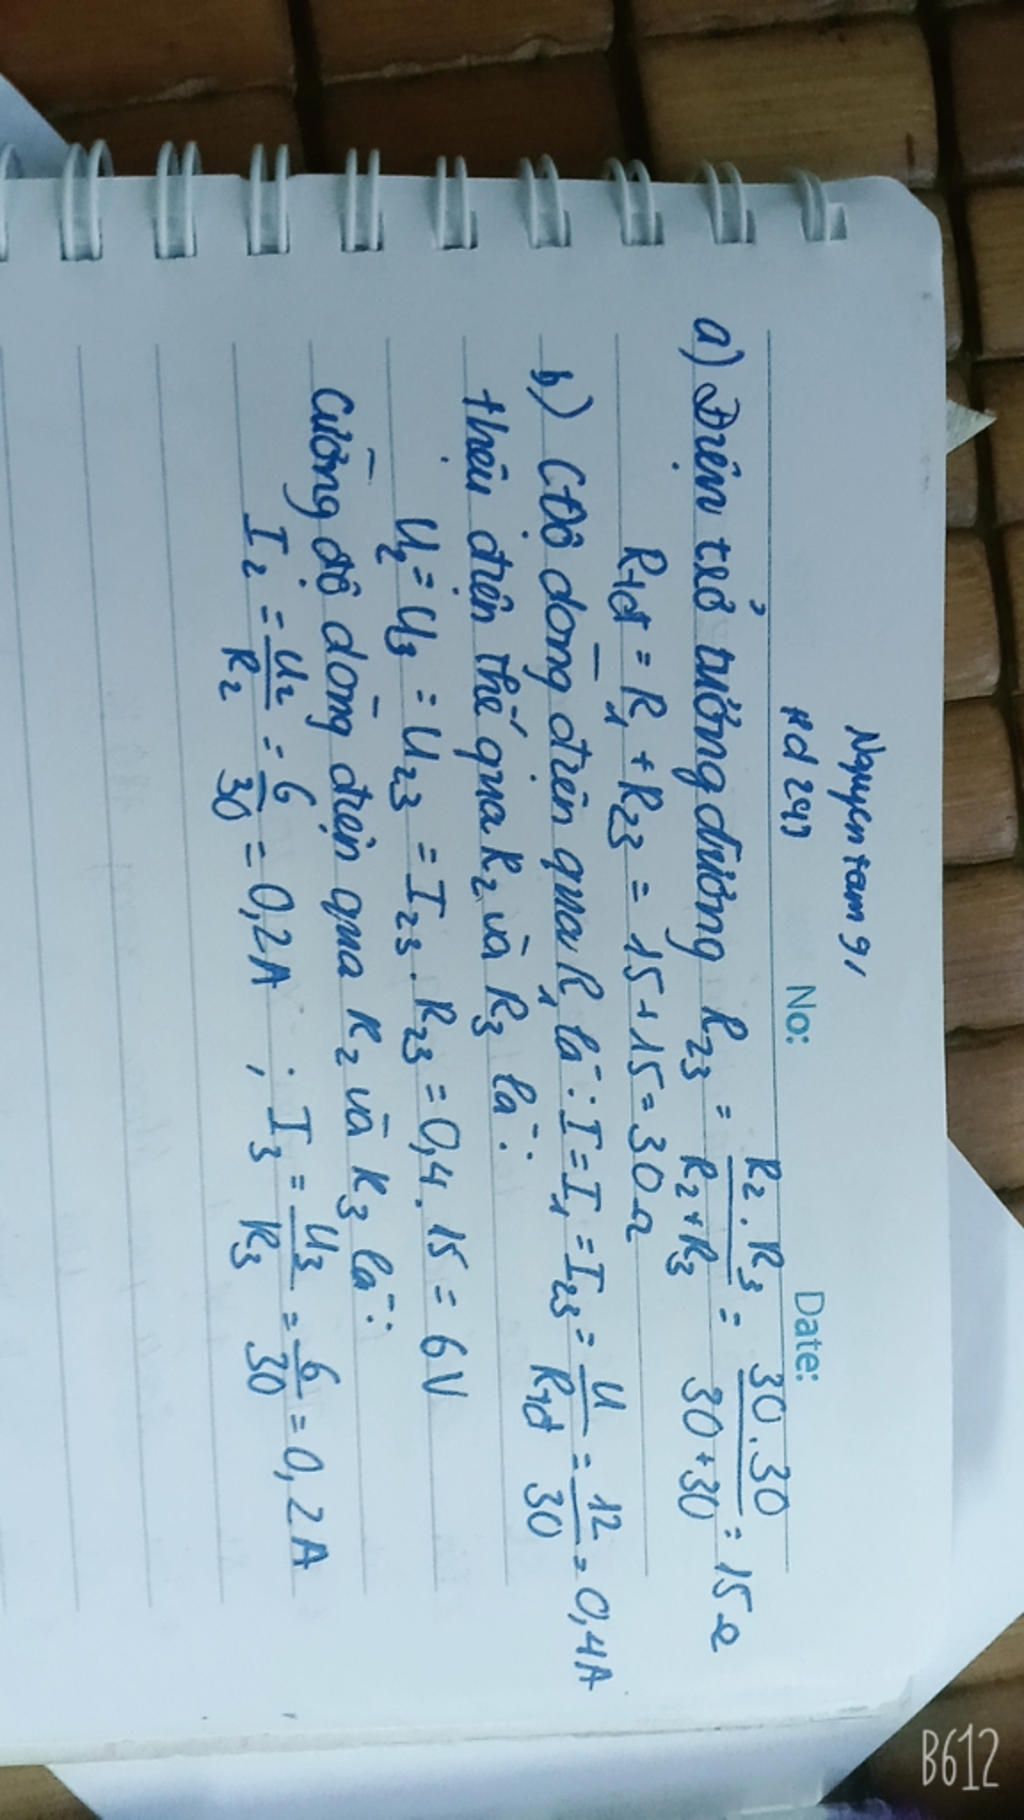 Nguyen tam 91
Hd 247
No: Date:
a) Điện trở tương đương R23 = R2.R3 / R2+R3 = 30.30 / 30+30 = 15Ω
Rtđ = R1 + R23 = 15+15 = 30Ω
b) CĐộ dòng điện qua R1 là: I = I1 = I23 = U / Rtđ = 12 / 30 = 0,4A
+ hiệu điện thế qua R2 và R3 là:
U2 = U3 = U23 = I23 . R23 = 0,4 . 15 = 6V
Cường độ dòng điện qua R2 và R3 là:
I2 = U2 / R2 = 6 / 30 = 0,2A ; I3 = U3 / R3 = 6 / 30 = 0,2A
B612